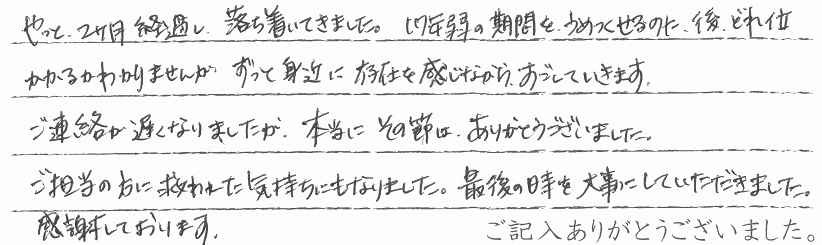 やっと、2ヶ月経過し、落ち着いてきました。17年弱の期間を、うめつくせるのに、後、どれ位
かかるかわかりませんが、ずっと身近に存在を感じながら、すごしていきます。
ご連絡が遅くなりましたが、本当にその節は、ありがとうございました。
ご担当の方に救われた気持ちにもなりました。最後の時を大事にしていただきました。
感謝しております。
ご記入ありがとうございました。